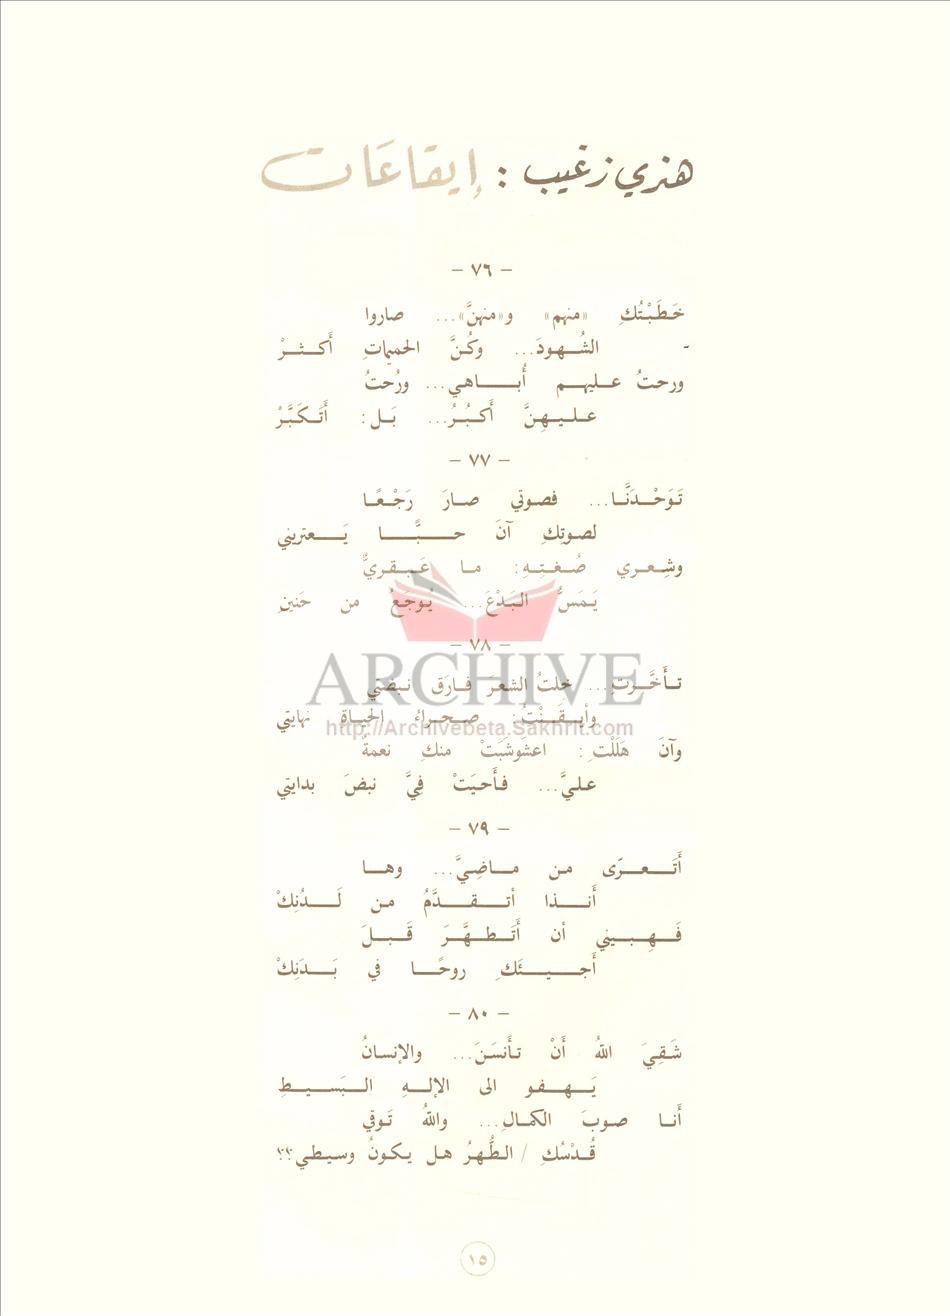 هنري زغيب : إيقاعَات
– ٧٦ –
خَطَبْتُكِ «منهم» و«منهنَّ»... صاروا
الشُهودَ... وكُنَّ الحميماتِ أَكثرْ
ورحتُ عليهم أُباهي... ورُحتُ
عليهِنَّ أَكبُرُ... بَل: أَتَكَبَّرْ
– ٧٧ –
تَوَحْدَنَّا... فصوتي صارَ رَجْعًا
لصوتِكِ آنَ حبًّا يَعتريني
وشِعري صُغتِهِ: ما عَبقريٌّ
يَمَسُّ البَدْعَ... يُوجَعُ من حَنينِ
– ٧٨ –
ARCHIVE
تأَخَّرتِ... خلتُ الشعرَ فارَق نبضتي
وأيقَنْتُ: صحراءُ الحياةِ نهايتي
http://Archivebeta.Sakhrit.com
وآنَ هَلَلْتِ: اعشَوشَبَتْ منكِ نعمةٌ
عليَّ... فأَحيَتْ فِيَّ نبضَ بدايتي
– ٧٩ –
أَتَعرّى من ماضِيَّ... وها
أَنذا أتقدَّمُ من لَدُنِكْ
فَهِبيني أن أَتَطهَّرَ قَبلَ
أَجيئَكِ روحًا في بَدَنِكْ
– ٨٠ –
شَقِيَ اللهُ أَنْ تأَنسَنَ... والإنسانُ
يَهفو الى الإلهِ البَسيطِ
أَنا صوبَ الكمالِ... واللهُ تَوقي
قُدْسُكِ / الطُّهرُ هل يكونُ وسيطي؟؟
١٥